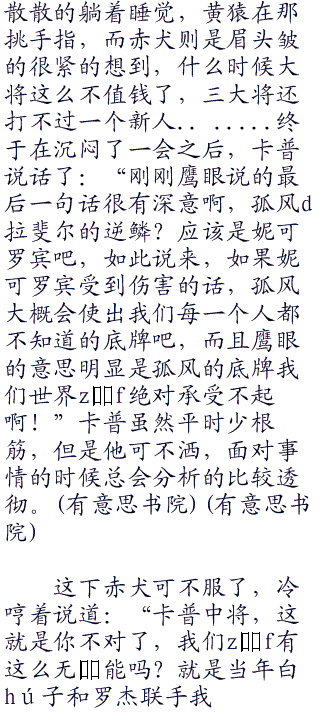 散散的躺着睡觉，黄猿在那
挑手指，而赤犬则是眉头皱
的很紧的想到，什么时候大
将这么不值钱了，三大将还
打不过一个新人．．．．．．．终
于在沉闷了一会之后，卡普
说话了：“刚刚鹰眼说的最
后一句话很有深意啊，孤风d
拉斐尔的逆鳞？应该是妮可
罗宾吧，如此说来，如果妮
可罗宾受到伤害的话，孤风
大概会使出我们每一个人都
不知道的底牌吧，而且鹰眼
的意思明显是孤风的底牌我
们世界z▯▯f绝对承受不起
啊！”卡普虽然平时少根
筋，但是他可不洒，面对事
情的时候总会分析的比较透
彻。(有意思书院)(有意思书
院)
这下赤犬可不服了，冷
哼着说道：“卡普中将，这
就是你不对了，我们z▯▯f有
这么无▯▯能吗？就是当年白
hú子和罗杰联手我